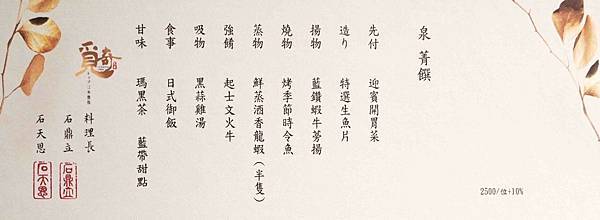 泉菁饌
先付 迎賓開胃菜
造り 特選生魚片
揚物 藍鑽蝦牛蒡揚
燒物 烤季節時令魚
蒸物 鮮蒸酒香龍蝦(半隻)
強餚 起士文火牛
吸物 黑蒜雞湯
食事 日式御飯
甘味 瑪黑茶 藍帶甜點
料理長
石鼎立
石天恩
覓奇
2500/位+10%